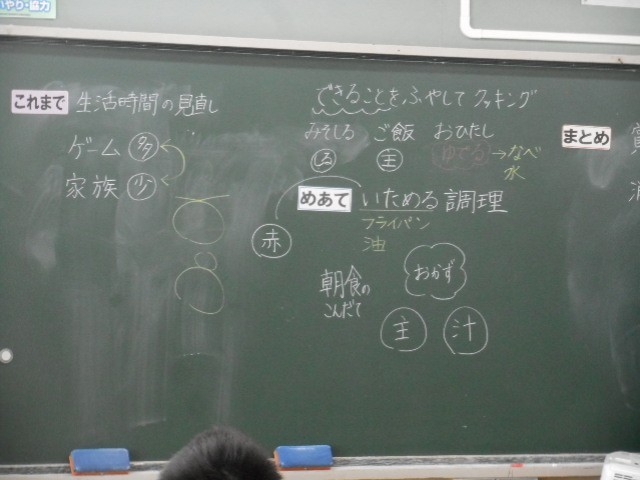 やり・協力
これまで 生活時間の見直し
ゲーム 多
家族 少
できることをふやしてクッキング
みそしる ご飯 おひたし
しる 主 ゆでる→なべ
水
めあて いためる調理
フライパン
油
赤
朝食の
こんだて
おかず
主 汁
まとめ